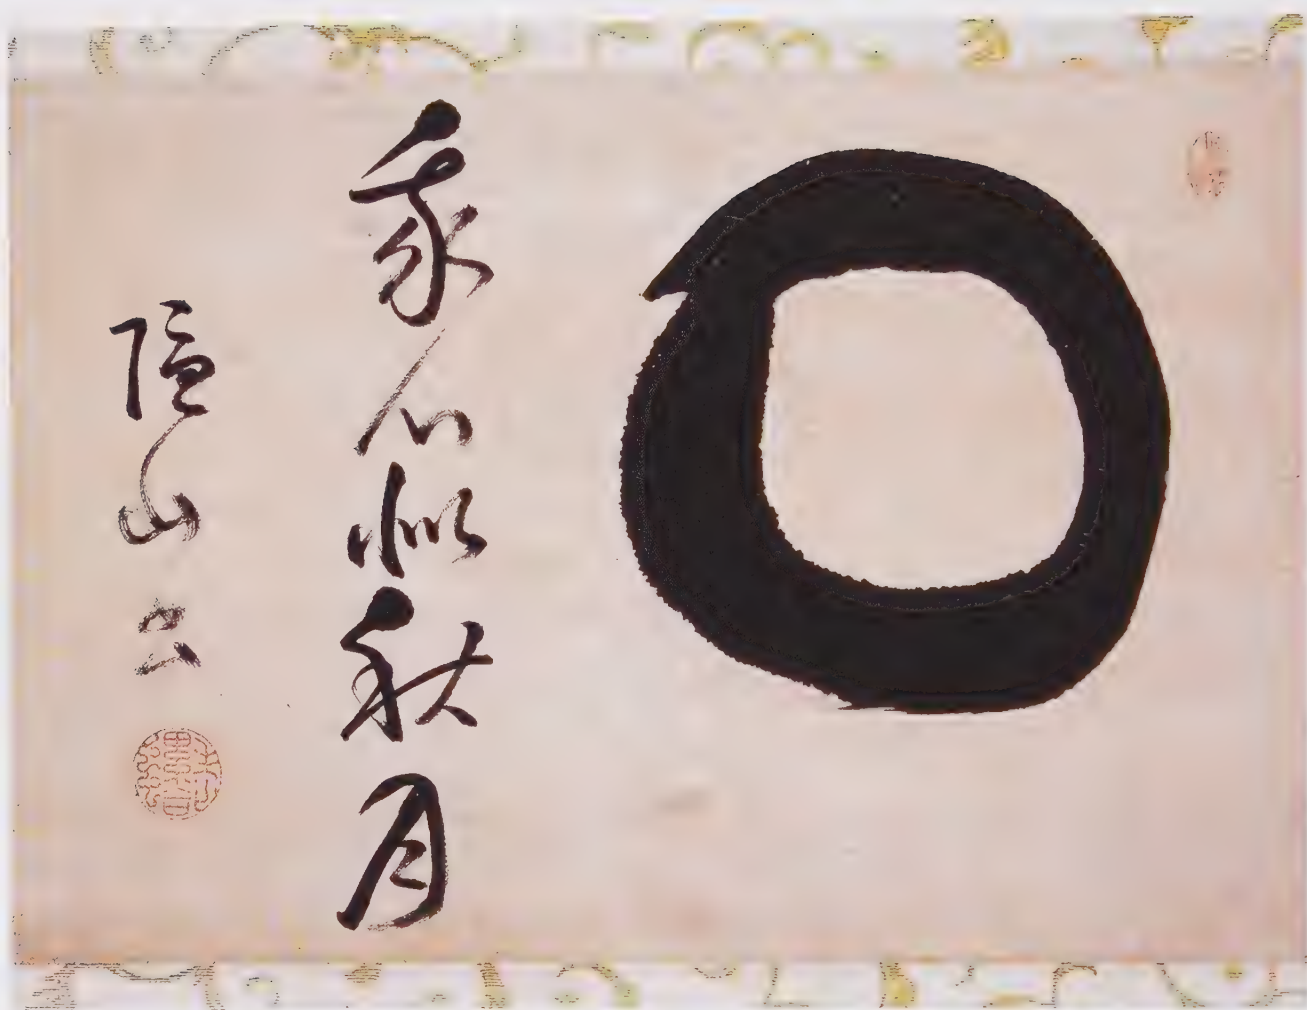 吾心似秋月
隠山書